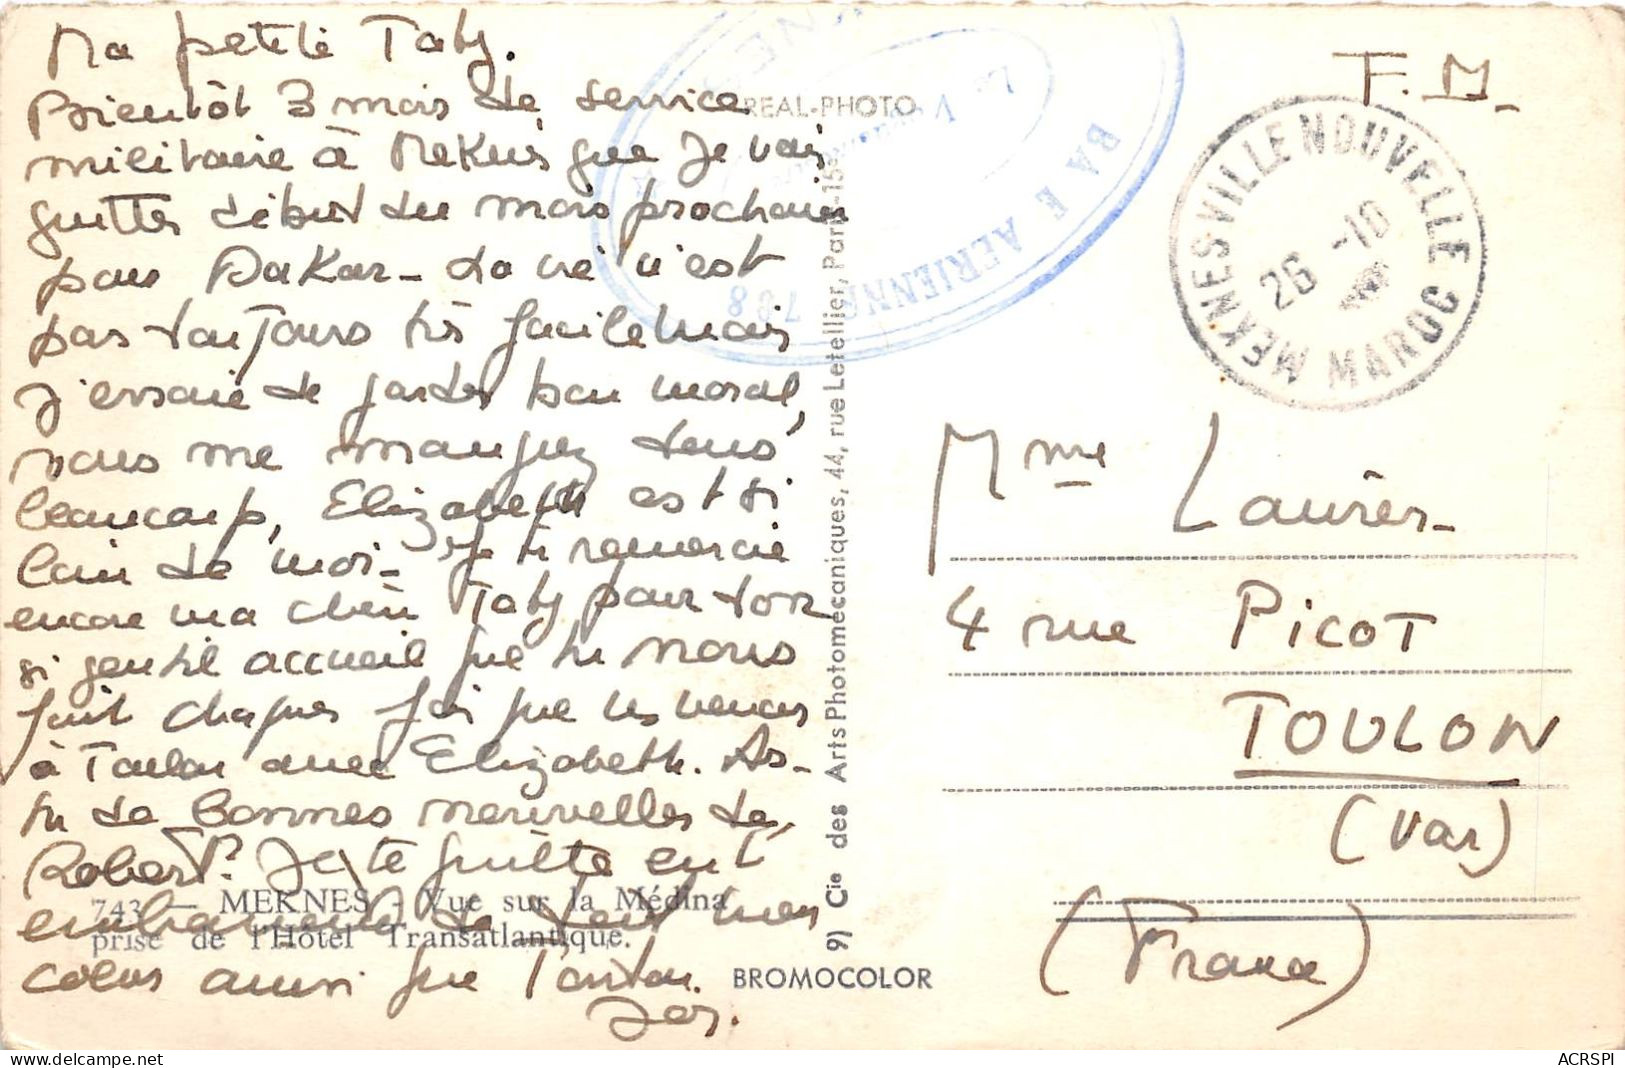 Ma petite Taty.
Bientôt 3 mois de service
militaire à Meknès que je vais
quitter début du mois prochain
pour Dakar - La vie n'est
pas toujours très facile mais
j'essaie de garder bon moral,
vous me manquez tous
beaucoup, Elizabeth est si
loin de moi - Je te remercie
encore ma chère Taty pour ton
si gentil accueil que tu nous
fait chaques fois que
à Toulon avec Elizabeth. As-
tu de bonnes nouvelles de
Robert? Je te quitte en t
embrassant de tout mon
coeur ainsi que Tonton.
743 — MEKNES - Vue sur la Médina
prise de l'Hôtel Transatlantique.
REAL-PHOTO
BASE AERIENNE 788
9) Cie des Arts Photomécaniques, 44, rue Letellier, Paris-15e
BROMOCOLOR
F.M.
MEKNES VILLE NOUVELLE
26 -10
MAROC
Mme Laurès
4 rue PICOT
TOULON
(Var)
(France)
ACRSPI